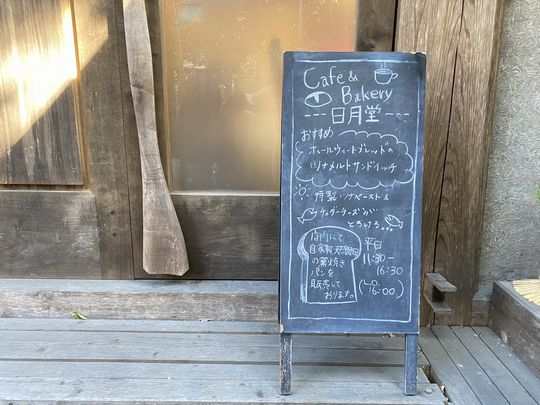 Cafe &
Bakery
--- 日月堂 ---
おすすめ
ホールウィートブレッドの
ツナメルトサンドイッチ
特製ツナペースト&
チェダーチーズが
とろける...
店内にて
自家製天然酵母
の窯焼き
パンを
販売して
おります。
平日
11:30-
16:30
(L.O.
16:00)